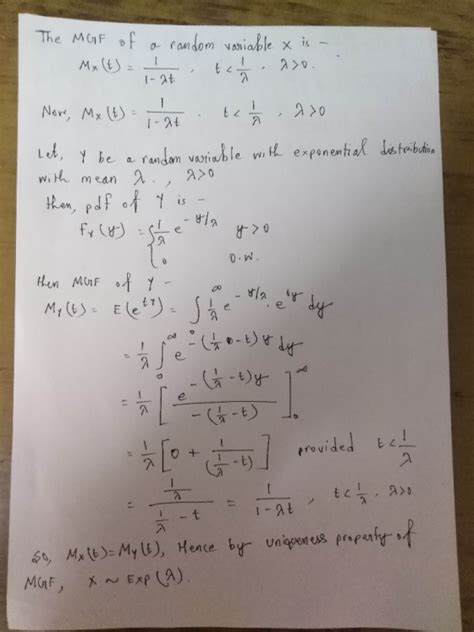 The MGF of a random variable X is –
Mx(t) = 1/(1-λt) , t < 1/λ , λ>0.
Now, Mx(t) = 1/(1-λt) , t < 1/λ , λ>0
Let, Y be a random variable with exponential distribution
with mean λ. , λ>0
then, pdf of Y is –
Fy(y) = { 1/λ e^(-y/λ) y>0
0 o.w.
then MGF of Y –
My(t) = E(e^(tY)) = ∫_0^∞ 1/λ e^(-y/λ) . e^(ty) dy
= 1/λ ∫_0^∞ e^(-(1/λ - t)y) dy
= 1/λ [ e^(-(1/λ - t)y) / -(1/λ - t) ]_0^∞
= 1/λ [ 0 + 1/(1/λ - t) ] provided t < 1/λ
= (1/λ)/(1/λ - t) = 1/(1-λt) , t < 1/λ . λ>0
So, Mx(t) = My(t), Hence by uniqueness property of
MGF, X ~ Exp(λ).